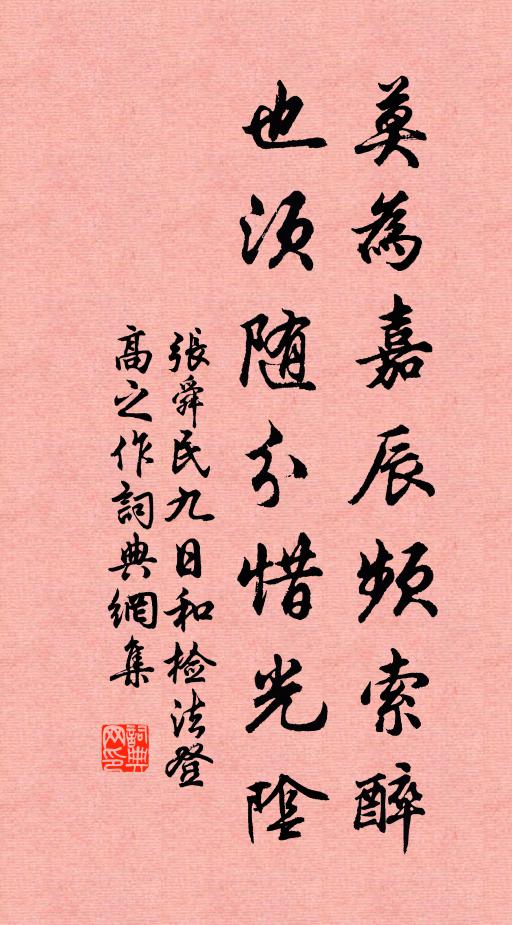 莫為嘉辰頻索醉
也須随分惜光陰
張舜民九日和檢法登
高之作詞典網集
詞典
网印